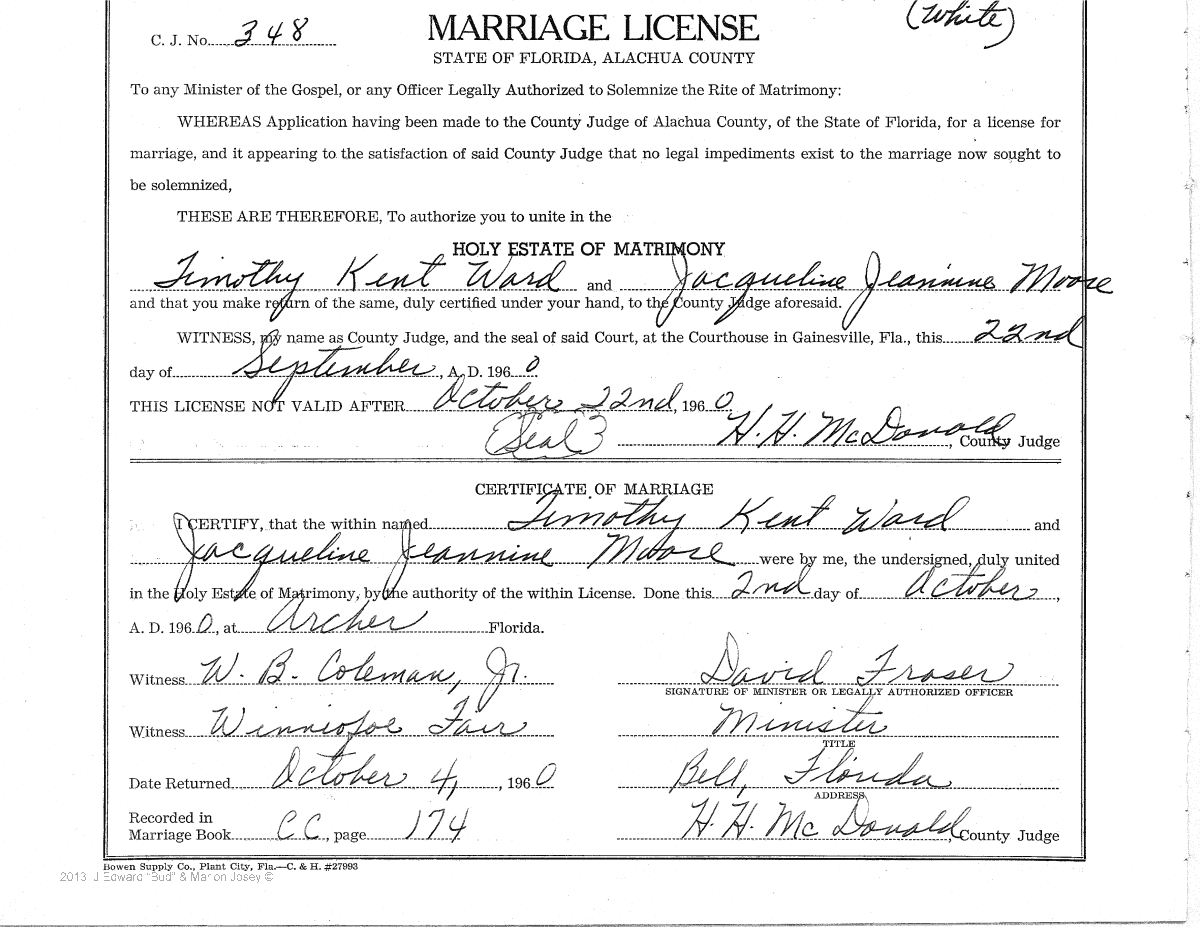 (White)
C. J. No. 348
MARRIAGE LICENSE
STATE OF FLORIDA, ALACHUA COUNTY
To any Minister of the Gospel, or any Officer Legally Authorized to Solemnize the Rite of Matrimony:
WHEREAS Application having been made to the County Judge of Alachua County, of the State of Florida, for a license for
marriage, and it appearing to the satisfaction of said County Judge that no legal impediments exist to the marriage now sought to
be solemnized,
THESE ARE THEREFORE, To authorize you to unite in the
HOLY ESTATE OF MATRIMONY
Timothy Kent Ward and Jacqueline Jeannine Moore
and that you make return of the same, duly certified under your hand, to the County Judge aforesaid.
WITNESS, my name as County Judge, and the seal of said Court, at the Courthouse in Gainesville, Fla., this 22nd
day of September, A. D. 1960
THIS LICENSE NOT VALID AFTER October 22nd, 1960
(Seal) H. H. McDonald, County Judge
CERTIFICATE OF MARRIAGE
I CERTIFY, that the within named Timothy Kent Ward and
Jacqueline Jeannine Moore were by me, the undersigned, duly united
in the Holy Estate of Matrimony, by the authority of the within License. Done this 2nd day of October,
A. D. 1960, at Archer Florida.
Witness W. B. Coleman, Jr. David Fraser
SIGNATURE OF MINISTER OR LEGALLY AUTHORIZED OFFICER
Witness Fair Minister
TITLE
Date Returned October 4, 1960 Bell, Florida
ADDRESS
Recorded in
Marriage Book CC, page 174 H. H. McDonald, County Judge
Bowen Supply Co., Plant City, Fla.—C. & H. #27993
2013 J Edward "Bud" & Marion Josey ©